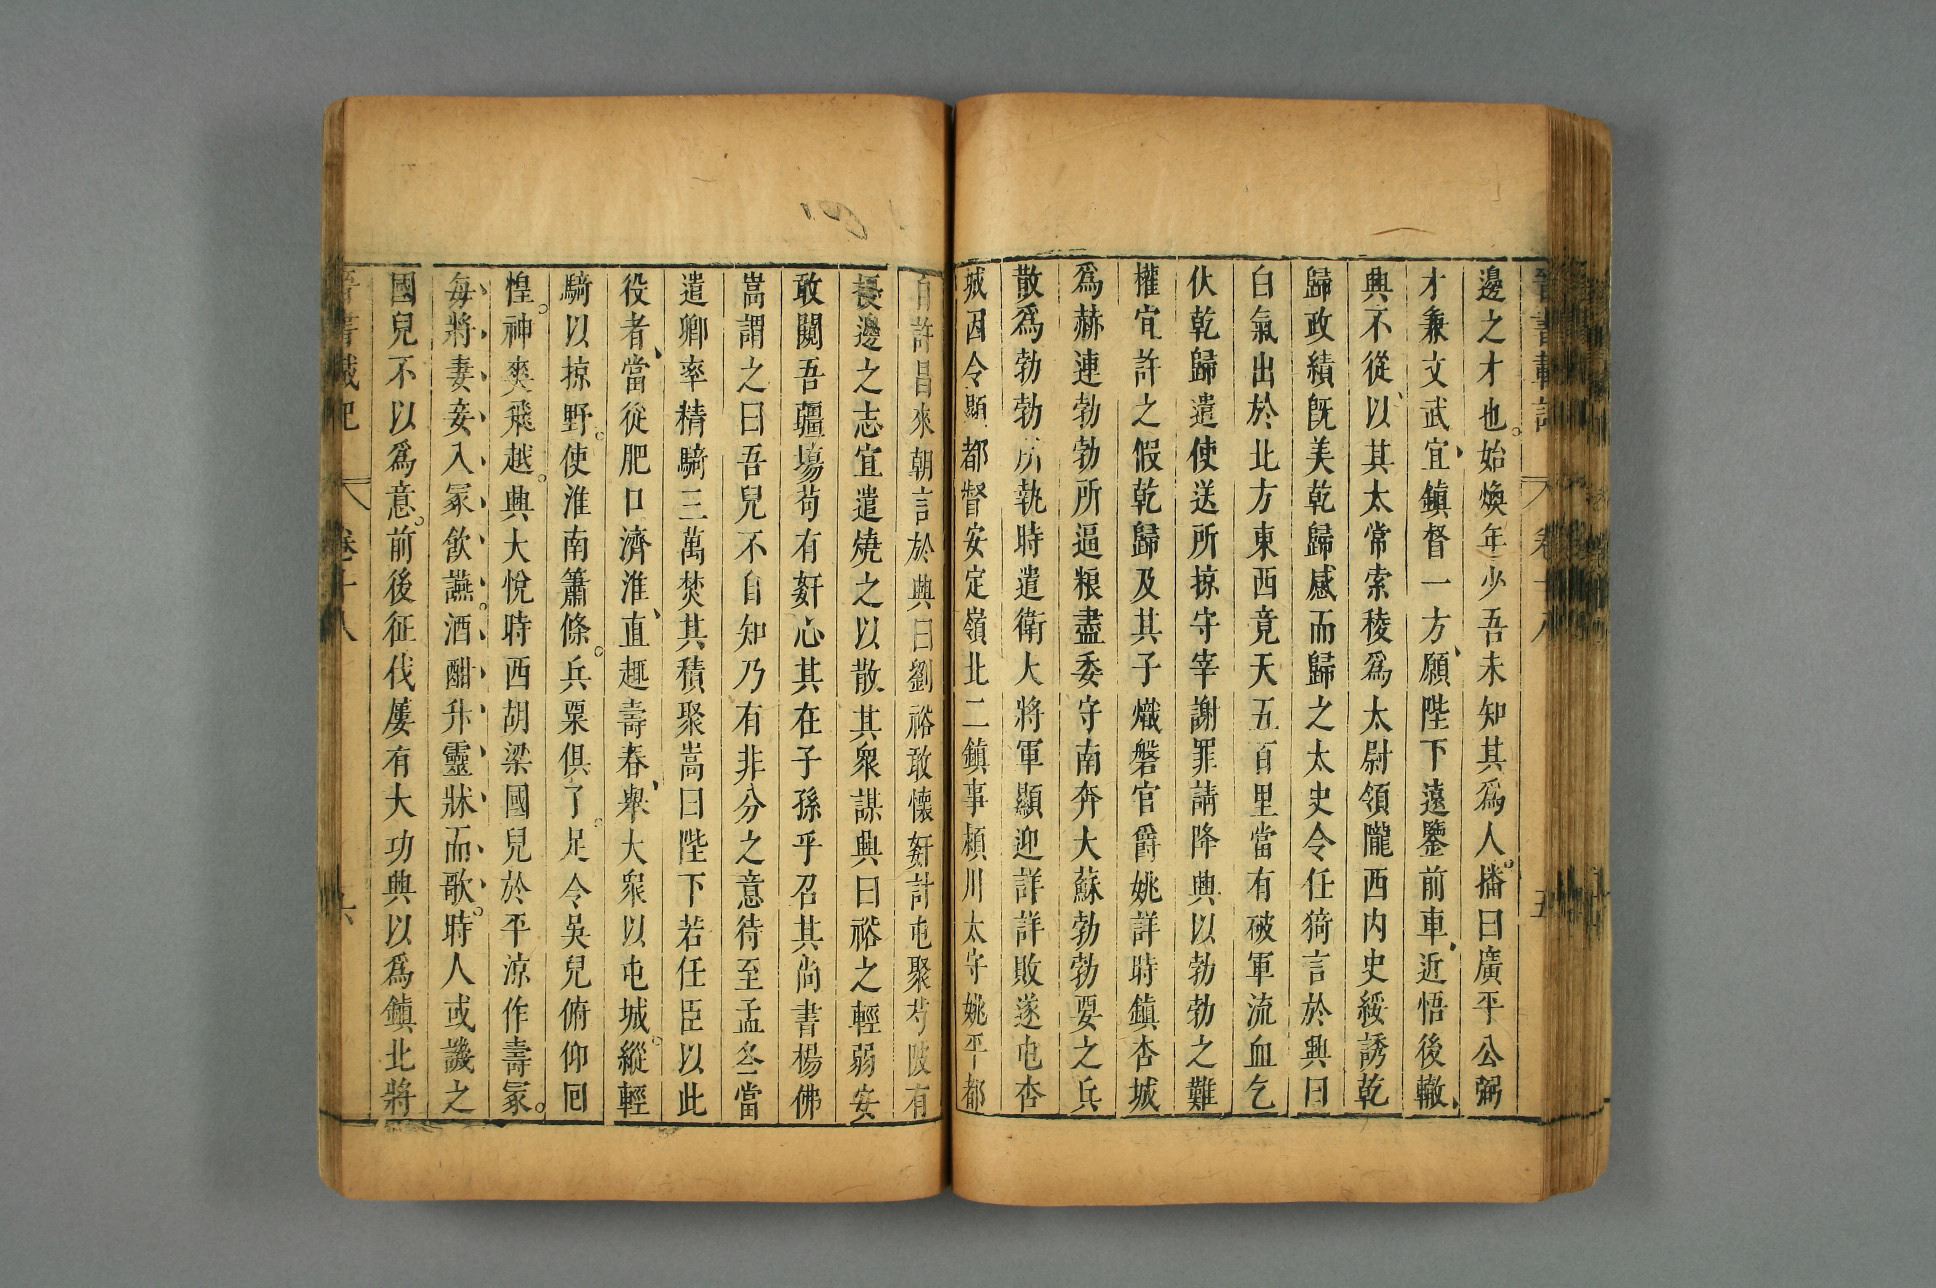 晉書載記 卷十八 五
邊之才也。始煥年少吾未知其爲人。播曰廣平公弼
才兼文武宜、鎮督一方、願陛下遠鑒前車、近悟後轍、
興不從、以其太常索稜爲太尉領隴西內史綏誘乾
歸政績旣美乾歸感而歸之太史令任猗言於興曰
白氣出於北方東西竟天五百里當有破軍流血乞
伏乾歸遣使送所掠守宰謝罪請降興以勃勃之難
權宜許之假乾歸及其子熾磐官爵姚詳時鎮杏城
爲赫連勃勃所逼粮盡委守南奔大蘇勃勃要之兵
散爲勃勃所執時遣衛大將軍顯迎詳詳敗遂屯杏
城因令顯都督安定嶺北二鎮事潁川太守姚平都
自許昌來朝言於興曰劉裕敢懷姧計屯聚芍陂有
擾邊之志宜遣燒之以散其衆謀興曰裕之輕弱安
敢闚吾疆埸苟有姧心其在子孫乎召其尚書楊佛
嵩謂之曰吾兒不自知乃有非分之意待至孟冬當
遣卿率精騎三萬焚其積聚嵩曰陛下若任臣以此
役者、當從肥口濟淮、直趣壽春、舉大衆以屯城。縱輕
騎以掠野。使淮南簫條。兵粟俱了。足令吳兒俯仰回
惶。神爽飛越。興大悅時西胡梁國兒於平涼作壽冢。
每將妻妾入冢飲讌。酒酣升靈牀而歌。時人或譏之
國兒不以爲意。前後征伐屢有大功興以爲鎮北將
晉書載記 卷十八 六